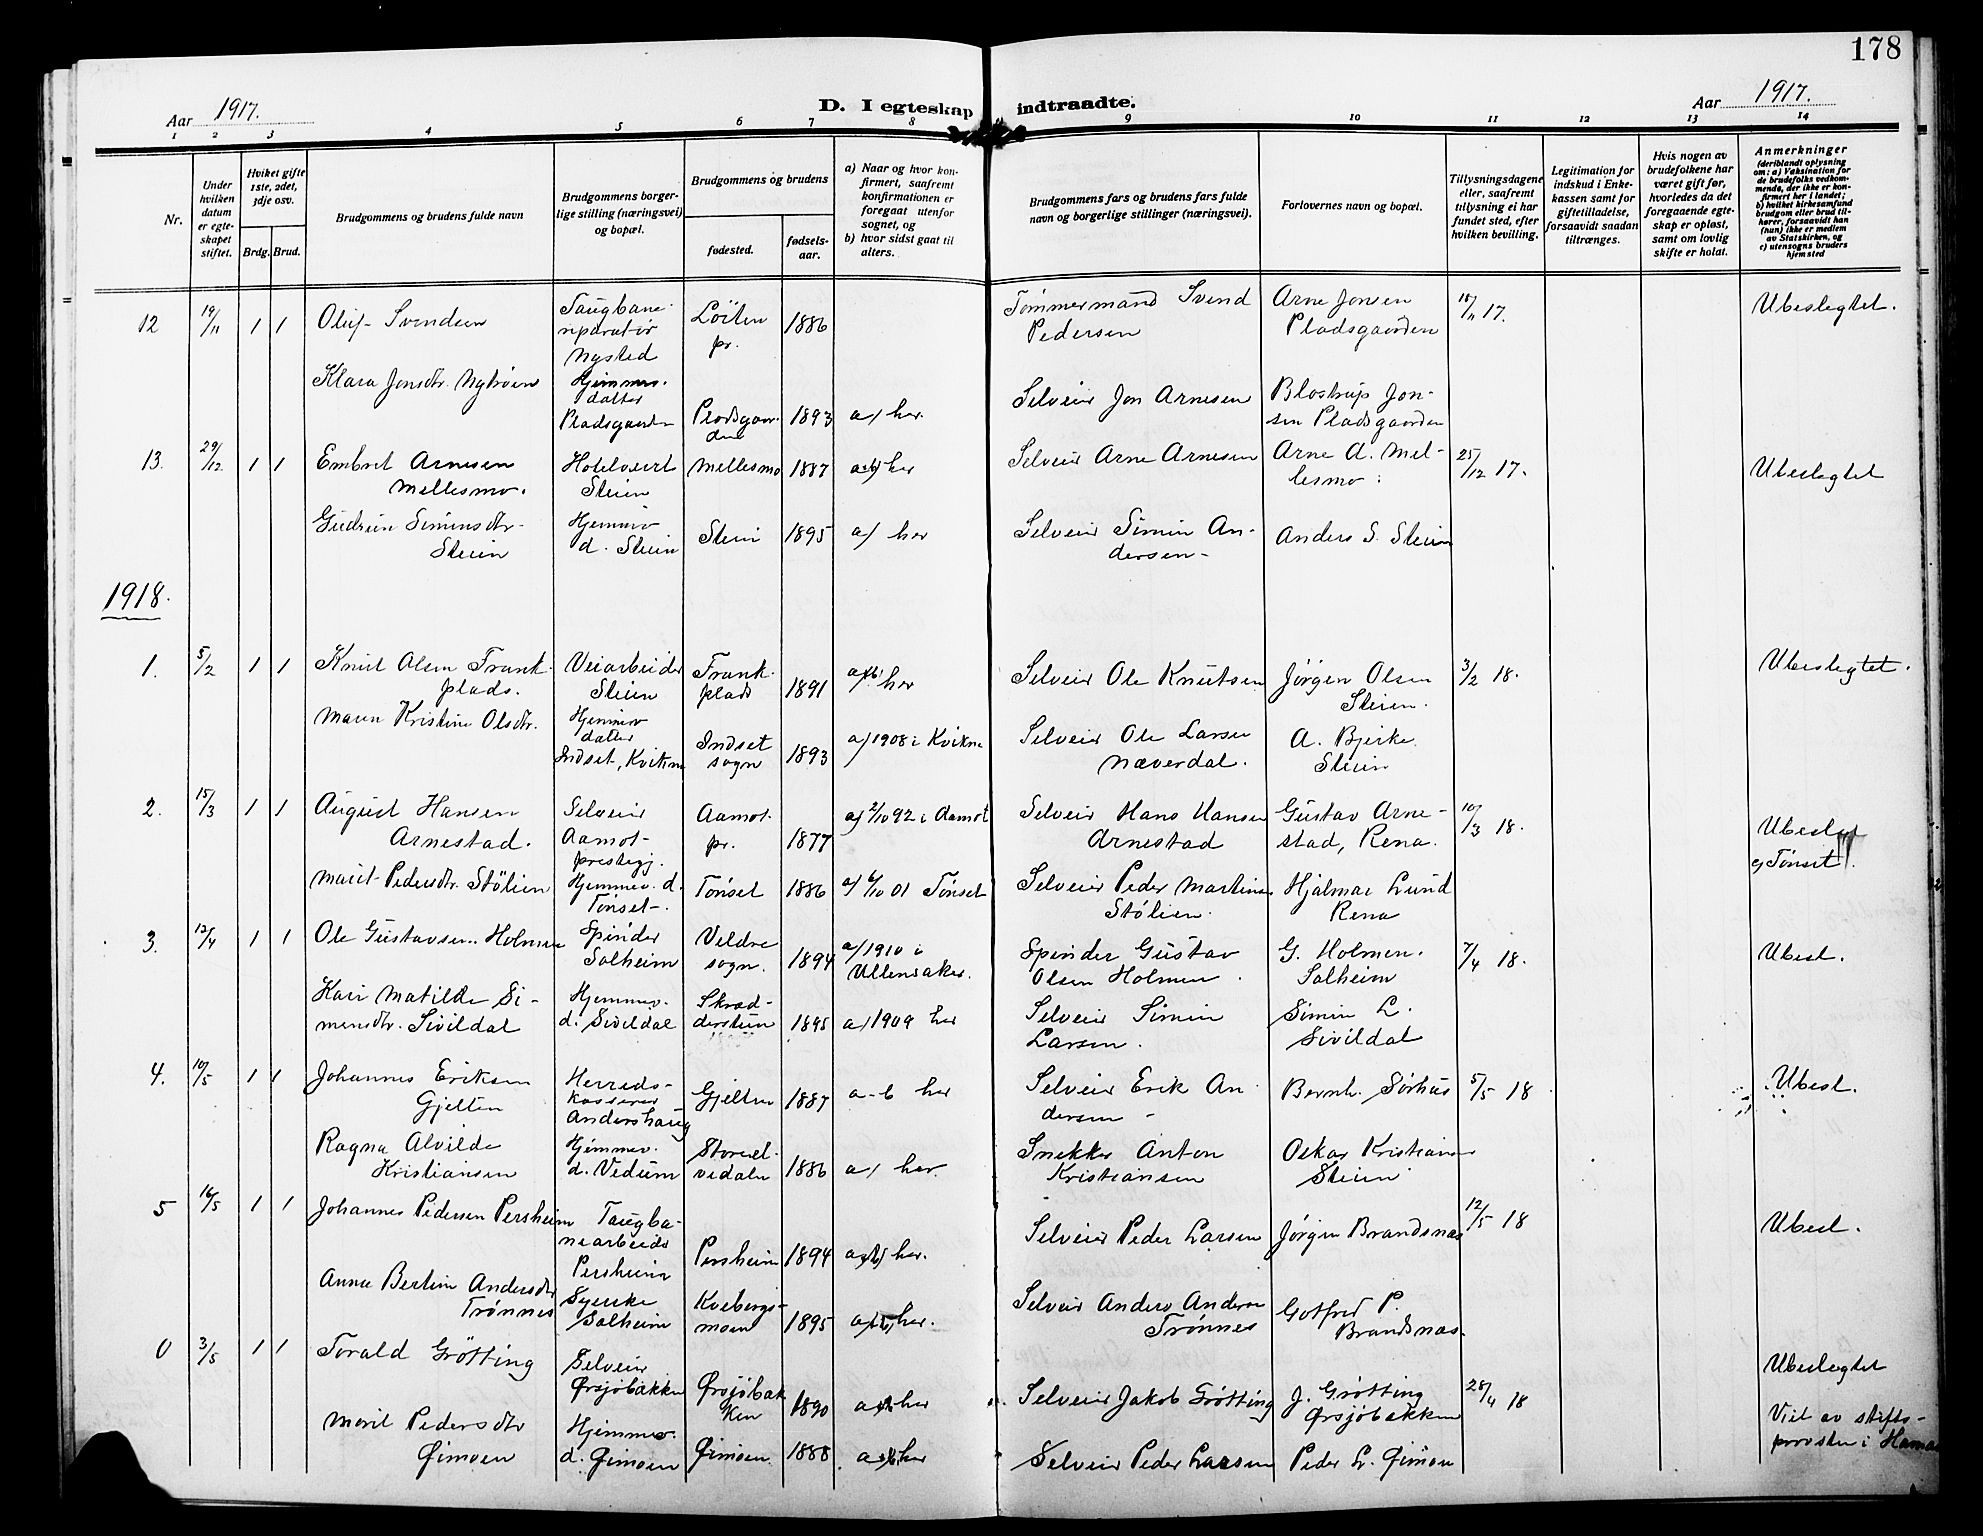 178
Aar 1917.
D. I egteskap indtraadte.
Aar 1917.
1 2 3 4 5 6 7 8 9 10 11 12 13 14
Nr.
Under hvilken datum er egteskapet stiftet.
Hviket gifte 1ste, 2det, 3dje osv.
Brdg. Brud.
Brudgommens og brudens fulde navn
Brudgommens borgerlige stilling (næringsvei) og bopæl.
Brudgommens og brudens
fødested.
fødselsaar.
a) Naar og hvor konfirmert, saafremt konfirmationen er foregaat utenfor sognet, og
b) hvor sidst gaat til alters.
Brudgommens fars og brudens fars fulde navn og borgerlige stillinger (næringsvei).
Forlovernes navn og bopæl.
Tillysningsdagene eller, saafremt tillysning ei har fundet sted, efter hvilken bevilling.
Legitimation for indskud i Enkekassen samt for giftetilladelse, forsaavidt saadan tiltrænges.
Hvis nogen av brudefolkene har været gift før, hvorledes da det foregaaende egteskap er opløst, samt om lovlig skifte er holdt.
Anmerkninger
(deriblandt oplysning om: a) Vaksination for de brudefolks vedkommende, der ikke er konfirmert her i landet; b) hvilket kirkesamfund brudgom eller brud tilhører, forsaavidt han (hun) ikke er medlem av Statskirken, og c) utensogns bruders hjemsted
12 19/11 1 1 Oluf Svendsen Taugbanereparatør Nysted Löiten pr. 1886 Tömmermand Svend Pedersen Arne Jonsen Pladsgaarden 18/11 17. Ubeslegtet.
Klara Jonsdtr. Nytrøen Hjemmev. datter Pladsgaarden Pladsgaarden 1893 a) her. Selveier Jon Arnesen Blostrup Jonsen Pladsgaarden
13. 29/12 1 1 Embret Arnesen Mellesmo. Hotelvert Steien Mellesmo 1887 a+b) her Selveier Arne Arnesen Arne A. Mellesmo 25/12 17. Ubeslegtet
Gudrun Simensdtr. Steien Hjemmev. d. Steien Steien 1895 a) her Selveier Simen Andersen Anders S. Steien
1918.
1. 5/2 1 1 Knut Olsen Frankplads. Veiarbeider Steien Frankplads 1891 a+b) her Selveier Ole Knutsen Jörgen Olsen Steien. 3/2 18. Ubeslegtet.
Maren Kristine Olsdtr. Hjemmev datter Indset, Kvikne Indset sogn 1893 a) 1908 i Kvikne Selveier Ole Larsen Næverdal. A. Bjerke Steien
2. 15/3 1 1 August Hansen Arnestad. Selveier Aamot prestegj. Aamot pr. 1877 a) 2/10 92 i Aamot Selveier Hans Hansen Arnestad Gustav Arnestad, Rena. 10/3 18. Ubeslegt
c) Tönset.
Marit Pedersdtr. Stölien Hjemmev. d. Tönset. Tönset 1886 a) 6/10 01 Tönset Selveier Peder Martinsen Stölien. Hjalmar Lund Rena
3. 12/4 1 1 Ole Gustavsen Holmen Spinder Solheim Veldre sogn. 1894 a) 1910 i Ullensaker. Spinder Gustav Olsen Holmen. G. Holmen. Solheim 7/4 18. Ubesl.
Kari Matilde Simensdtr. Sivildal Hjemmev. d. Sivildal Skrædderstuen 1895 a) 1909 her Selveier Simen Larsen. Simen L. Sivildal
4. 10/5 1 1 Johannes Eriksen Gjelten Herredskasserer Andershaug Gjelten 1887 a-b her Selveier Erik Andersen Bernh. Sörhus 5/5 18 Ubesl.
Ragna Alvilde Kristiansen Hjemmev. d. Vedum Storelvedalen 1886 a) her. Snekker Anton Kristiansen Oskar Kristiansen Steien
5 16/5 1 1 Johannes Pedersen Persheim Taugbanearbeider Persheim Persheim 1894 a+b) her. Selveier Peder Larsen Jörgen Brandsnes 12/5 18 Ubesl.
Anna Bertine Andersdtr Trønnes Syerske Solheim Kvebergsmoen 1895 a+b) her. Selveier Anders Andersen Trønnes Gotfred P. Brandsnes.
0 3/5 1 1 Torald Grötting Selveier Ørsjöbakken Ørsjöbakken 1890 a+b her Selveier Jakob Grötting J. Grötting Ørsjöbakken 28/4 18 Ubeslegtet
Viet av stiftsprovsten i Hamar
Marit Pedersdtr Øimoen Hjemmev. d. Øimoen Øimoen 1888 a+b) her Selveier Peder Larsen Peder L. Øimoen